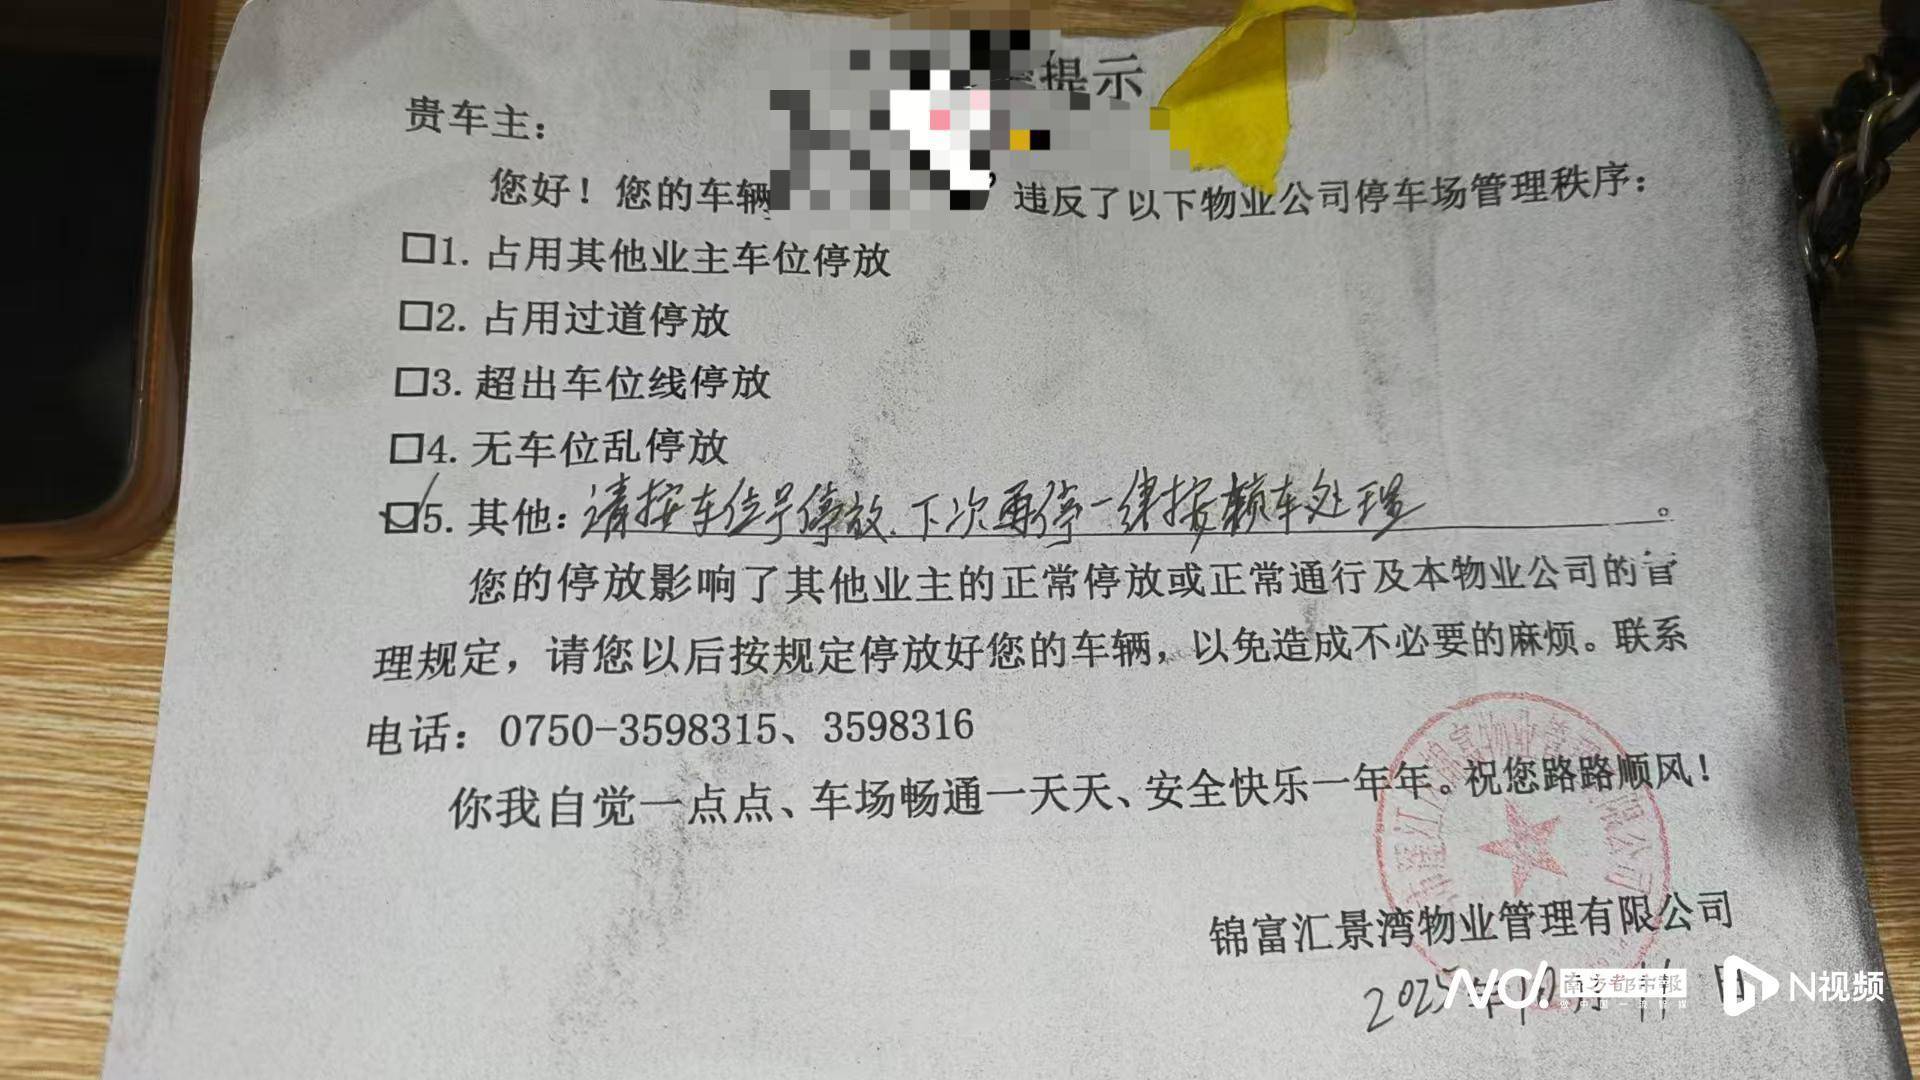 提示
贵车主：
您好！您的车辆 ，违反了以下物业公司停车场管理秩序：
□1. 占用其他业主车位停放
□2. 占用过道停放
□3. 超出车位线停放
□4. 无车位乱停放
☑5. 其他：请按车位号停放、下次再停一律按赖车处理。
您的停放影响了其他业主的正常停放或正常通行及本物业公司的管
理规定，请您以后按规定停放好您的车辆，以免造成不必要的麻烦。联系
电话：0750-3598315、3598316
你我自觉一点点、车场畅通一天天、安全快乐一年年。祝您路路顺风！
锦富汇景湾物业管理有限公司
2025年10月11日
南方都市报
N视频